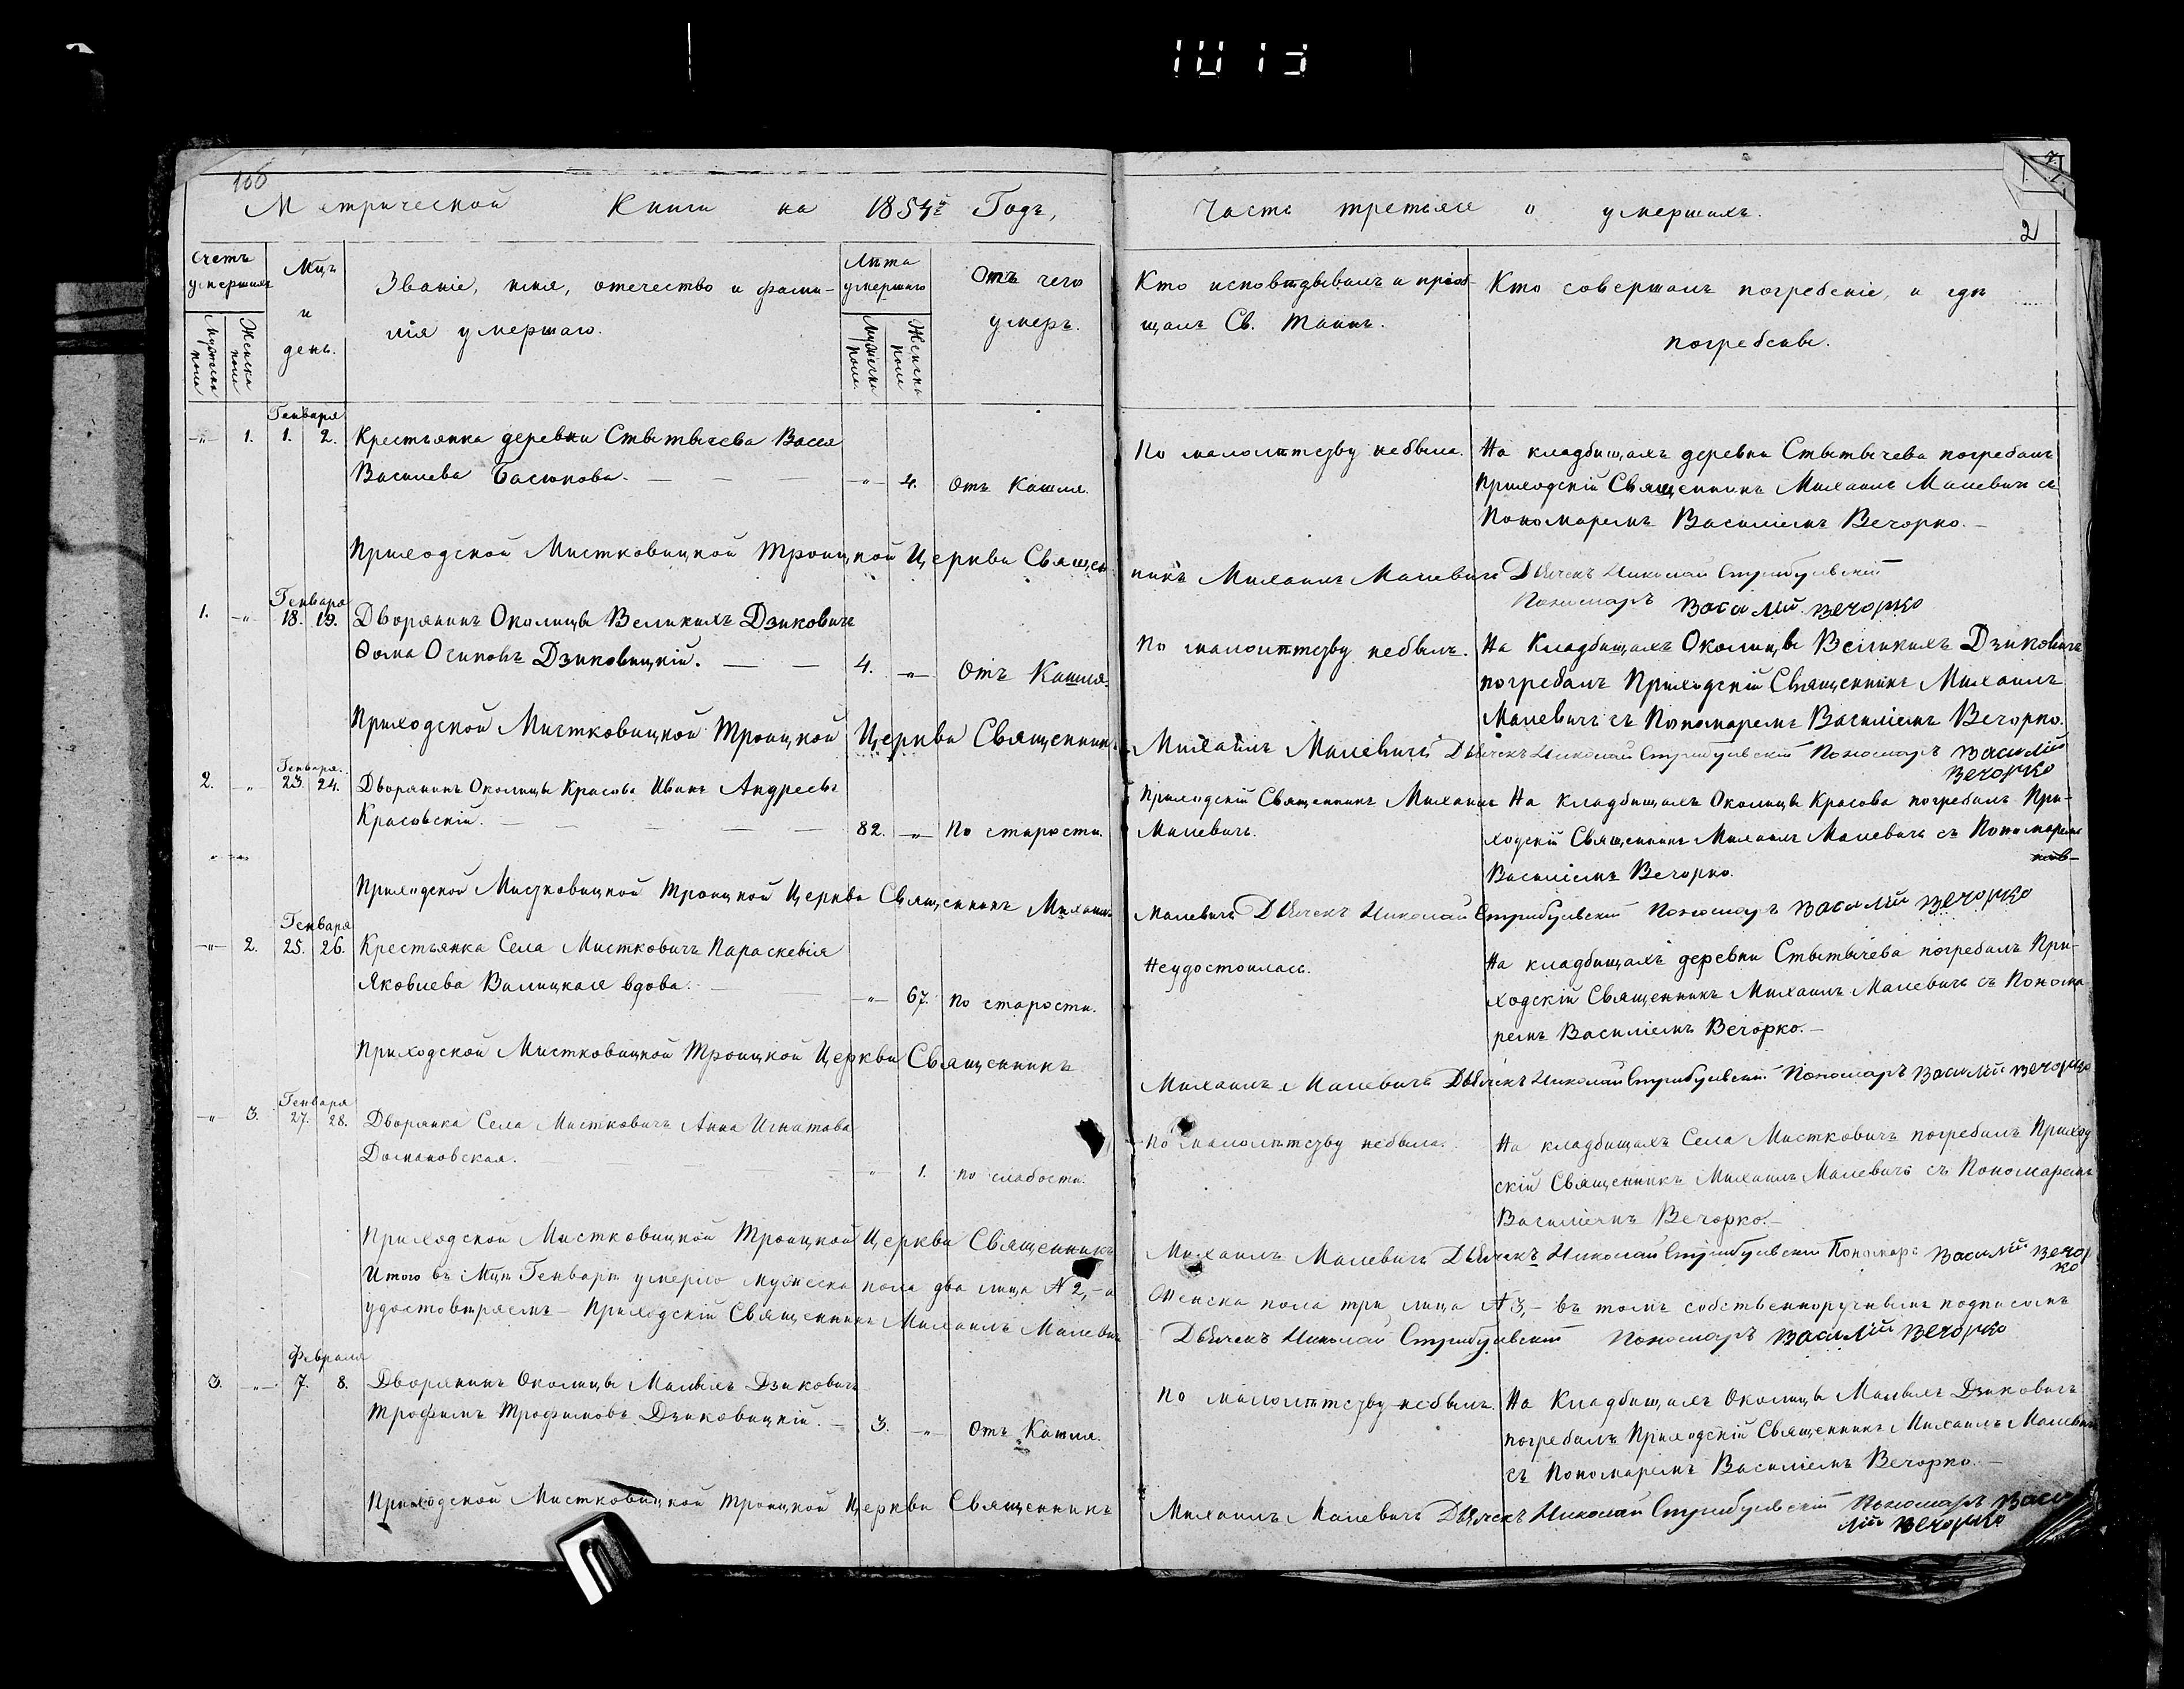 1013
166
Метрической Книги на 1854й Годъ,
Часть третьяя о умершихъ.
2
Счетъ умершихъ
Мужеска пола
Женска пола
Мцъ и день.
Званіе, имя, отечество и фами-
лія умершаго.
Лѣта умершаго
Мужеска пола
Женска пола
Отъ чего
умеръ.
Кто исповѣдывалъ и пріоб-
щалъ Св. Таинъ.
Кто совершалъ погребеніе, и гдѣ
погребены.
Генваря
-"- 1. 1. 2. Крестьянка деревни Стытычева Васса
Василева Басюкова. -"- 4. Отъ Кашля.
По малолѣтству небыла.
На кладбищахъ деревни Стытычева погребалъ
Приходскій Священникъ Михаилъ Малевичъ съ
Пономаремъ Василіемъ Вечорко.
Приходской Мистковицкой Троицкой Церкви Священ
никъ Михаилъ Малевичъ Дьячекъ Николай Стрибульскій
Пономаръ Василій Вечорко
Генваря
1. -"- 18. 19. Дворянинъ Околицы Великихъ Дзиковичъ
Ѳома Осиповъ Дзиковицкій. 4. -"- Отъ Кашля.
По малолѣтству небылъ.
На Кладбищахъ Околицы Великихъ Дзиковичъ
погребалъ Приходскій Священникъ Михаилъ
Малевичъ съ Пономаремъ Василіемъ Вечорко.
Приходской Мистковицкой Троицкой Церкви Священникъ
Михаилъ Малевичъ Дьячекъ Николай Стрибульскій Пономаръ Василій
Вечорко
Генваря.
2. -"- 23. 24. Дворянинъ Околицы Красова Иванъ Андреевъ
Красовскій. 82. -"- По старости.
Приходскій Священникъ Михаилъ
Малевичъ.
На кладбищахъ Околицы Красова погребалъ При-
ходскій Священникъ Михаилъ Малевичъ съ Пономаремъ
Василіемъ Вечорко.
Приходской Мистковицкой Троицкой Церкви Священникъ Михаилъ
Малевичъ Дьячекъ Николай Стрибульскій Пономаръ Василій Вечорко
Генваря
-"- 2. 25. 26. Крестьянка Села Мистковичъ Параскевія
Яковлева Валицкая вдова. -"- 67. По старости.
Неудостоилась.
На кладбищахъ деревни Стытычева погребалъ При-
ходскій Священникъ Михаилъ Малевичъ съ Понома-
ремъ Василіемъ Вечорко.
Приходской Мистковицкой Троицкой Церкви Священникъ
Михаилъ Малевичъ Дьячекъ Николай Стрибульскій Пономаръ Василій Вечорко
Генваря
-"- 3. 27. 28. Дворянка Села Мистковичъ Анна Игнатова
Домановская. -"- 1. по слабости.
По малолѣтству небыла.
На кладбищахъ Села Мистковичъ погребалъ Приход
скій Священникъ Михаилъ Малевичъ съ Пономаремъ
Василіемъ Вечорко.
Приходской Мистковицкой Троицкой Церкви Священникъ
Михаилъ Малевичъ Дьячекъ Николай Стрибульскій Пономаръ Василій Вечор
ко
Итого въ Мцѣ Генварѣ умерло мужеска пола два лица № 2,- а
Женска пола три лица № 3,- въ томъ собственноручнымъ подписомъ
удостовѣряемъ- Приходскій Священникъ Михаилъ Малевичъ
Дьячекъ Николай Стрибульскій Пономаръ Василій Вечорко
Февраля
3. -"- 7. 8. Дворянинъ Околицы Малыхъ Дзиковичъ
Трофимъ Трофимовъ Дзиковицкій. 3. -"- Отъ Кашля.
По малолѣтству небылъ.
На Кладбищахъ Околицы Малыхъ Дзиковичъ
погребалъ Приходскій Священникъ Михаилъ Малевичъ
съ Пономаремъ Василіемъ Вечорко.
Приходской Мистковицкой Троицкой Церкви Священникъ
Михаилъ Малевичъ Дьячекъ Николай Стрибульскій Пономаръ Васи
лій Вечорко